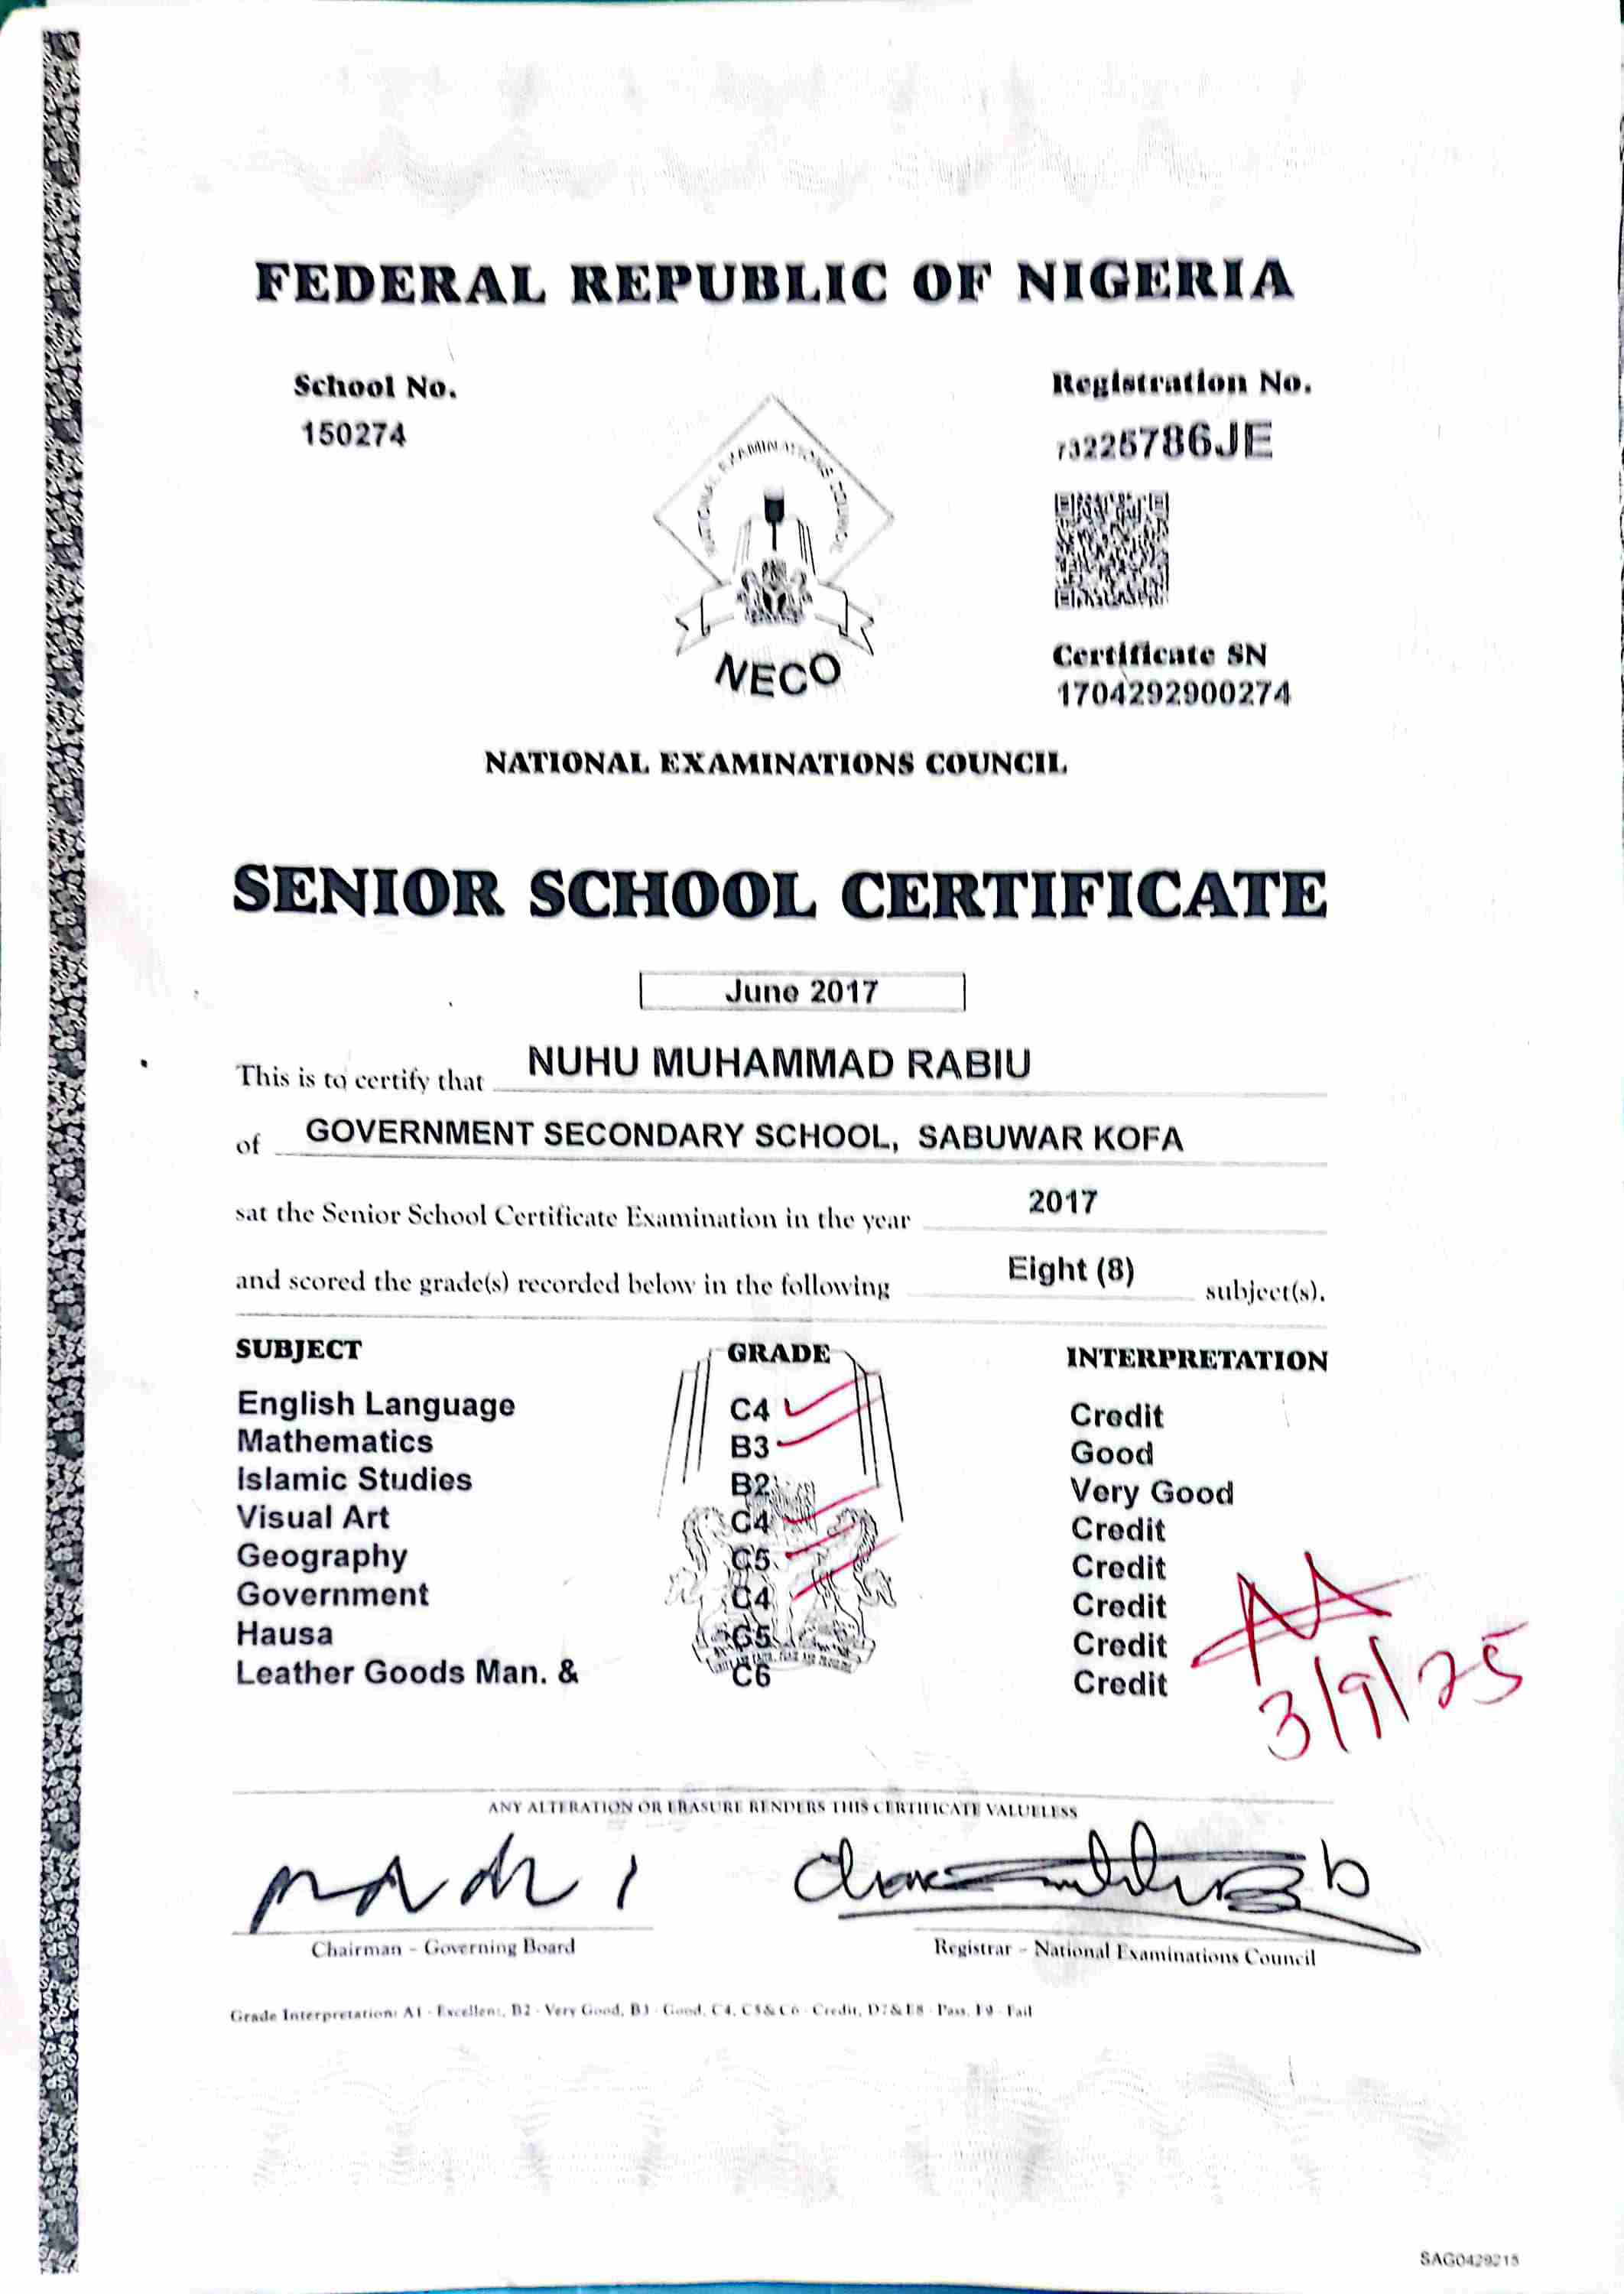 FEDERAL REPUBLIC OF NIGERIA
School No.
150274
Registration No.
73225786JE
NATIONAL EXAMINATIONS COUNCIL
NECO
Certificate SN
1704292900274
NATIONAL EXAMINATIONS COUNCIL
SENIOR SCHOOL CERTIFICATE
June 2017
This is to certify that NUHU MUHAMMAD RABIU
of GOVERNMENT SECONDARY SCHOOL, SABUWAR KOFA
sat the Senior School Certificate Examination in the year 2017
and scored the grade(s) recorded below in the following Eight (8) subject(s).
SUBJECT GRADE INTERPRETATION
English Language C4 Credit
Mathematics B3 Good
Islamic Studies B2 Very Good
Visual Art C4 Credit
Geography C5 Credit
Government C4 Credit
Hausa C5 Credit
Leather Goods Man. & C6 Credit
3/9/25
ANY ALTERATION OR ERASURE RENDERS THIS CERTIFICATE VALUELESS
Chairman - Governing Board
Registrar - National Examinations Council
Grade Interpretation: A1 - Excellent, B2 - Very Good, B3 - Good, C4, C5 & C6 - Credit, D7 & E8 - Pass, F9 - Fail
SAG0429215